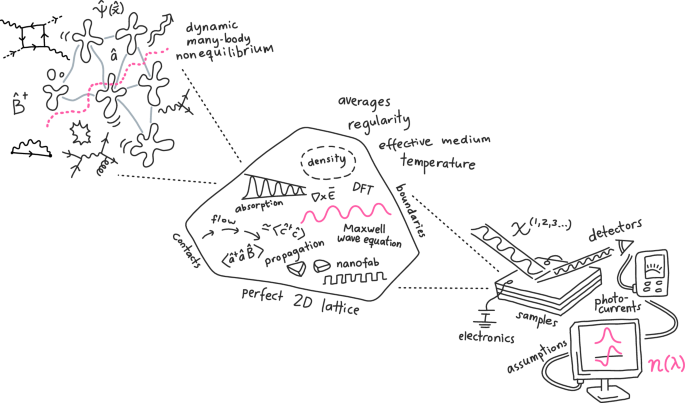 Ψ̂(x̂)
dynamic
many-body
nonequilibrium
â
B̂⁺
averages
regularity
effective medium
temperature
density
absorption
∇×E̅
DFT
boundaries
flow
≈[ĉ⁺ĉ]
Maxwell
wave equation
contacts
⟨â⁺âB̂⟩
propagation
nanofab
perfect 2D lattice
χ^(1,2,3...)
detectors
samples
photo-
currents
electronics
assumptions
n(λ)